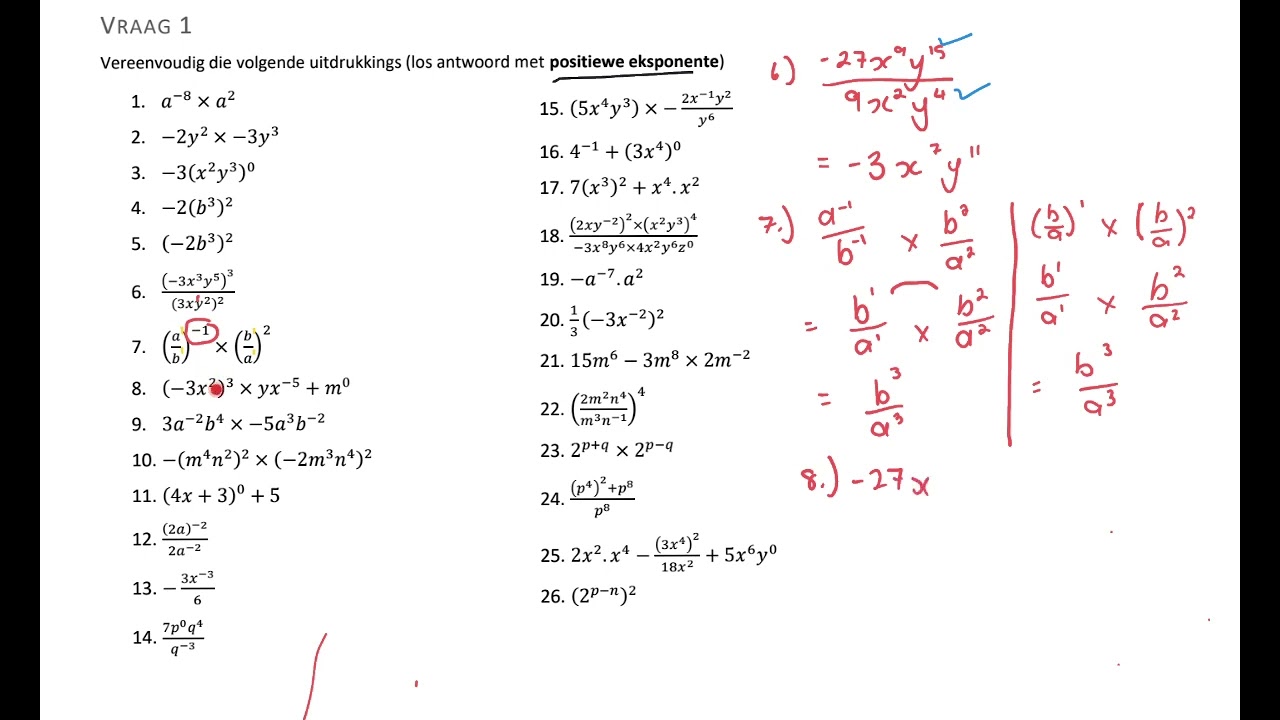 VRAAG 1
Vereenvoudig die volgende uitdrukkings (los antwoord met positiewe eksponente)
1. a⁻⁸ × a²
2. −2y² × −3y³
3. −3(x²y³)⁰
4. −2(b³)²
5. (−2b³)²
6. (−3x³y⁵)³ / (3xy²)²
7. (a/b)⁻¹ × (b/a)²
8. (−3x²)³ × yx⁻⁵ + m⁰
9. 3a⁻²b⁴ × −5a³b⁻²
10. −(m⁴n²)² × (−2m³n⁴)²
11. (4x + 3)⁰ + 5
12. (2a)⁻² / 2a⁻²
13. − 3x⁻³ / 6
14. 7p⁰q⁴ / q⁻³
15. (5x⁴y³) × − 2x⁻¹y² / y⁶
16. 4⁻¹ + (3x⁴)⁰
17. 7(x³)² + x⁴. x²
18. (2xy⁻²)²×(x²y³)⁴ / −3x⁸y⁶×4x²y⁶z⁰
19. −a⁻⁷. a²
20. 1/3 (−3x⁻²)²
21. 15m⁶ − 3m⁸ × 2m⁻²
22. (2m²n⁴ / m³n⁻¹)⁴
23. 2ᵖ⁺q × 2ᵖ⁻q
24. (p⁴)²+p⁸ / p⁸
25. 2x². x⁴ − (3x⁴)² / 18x² + 5x⁶y⁰
26. (2ᵖ⁻ⁿ)²
6) -27x⁹y¹⁵ / 9x²y⁴
= -3x⁷y¹¹
7.) a⁻¹ / b⁻¹ × b² / a²
= b¹ / a¹ × b² / a²
= b³ / a³
(b/a)¹ × (b/a)²
b¹ / a¹ × b² / a²
= b³ / a³
8.) -27x